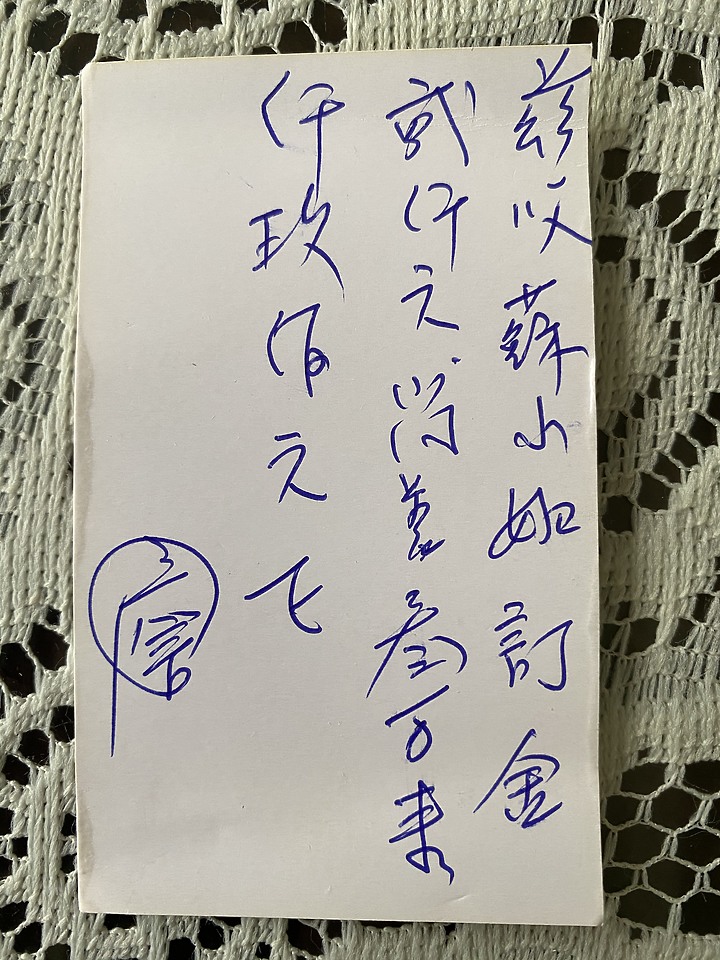 茲收蘇小姐訂金
貳仟元尚差叁万柒
仟玖佰元正